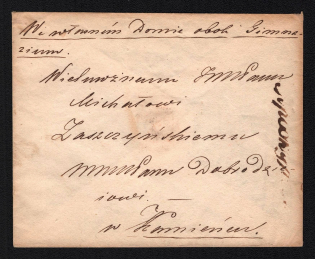 We własném Domie obok Gimna-
zium.
Wielmożnemu JmPanu
Michałowi
Zaszczyńskiemu
mmPanu Dobrodzi
iowi. —
w Kamieńcu.